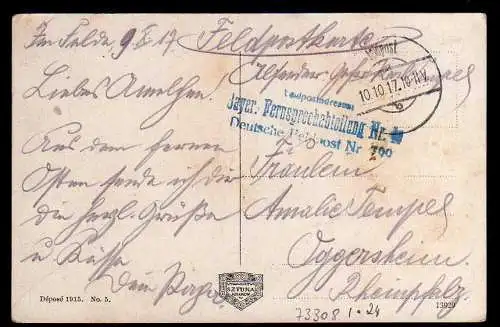 Im Felde, 9.X.17
Feldpostkarte
Absender: Gefr.
Feldpost
10.10.17.10-11V.
b
Feldpostadresse:
Bayer. Fernsprechabteilung Nr.
Deutsche Feldpost Nr. 700
Liebes Amalchen!
Aus dem fernen
Osten sende ich dir
die herzl. Grüße
und Küsse
Dein
Fräulein
Amalie Tempel
Oggersheim.
Rheinpfalz.
SZTUKA
Déposé 1915. No. 5.
13929
73308 1.24